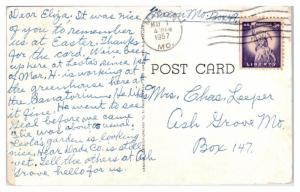 Dear Eliza, It was nice
of you to remember
us at Easter. Thanks
for the card. We've been
up at Leota's since 1st
of Mar. H. is working at
the greenhouse here at
the Sanatorium. He likes
it fine. He went to see
Neal before we came
she was about as usual,
Leota's garden is looking
nice. Hear Dads Co. is still
wet. Tell the others at Ash
Grove hello for us.
Mo.
MAY 1
4 PM
1957
MO.
LIBERTY
POST CARD
Mrs. Chas. Leeper
Ash Grove Mo.
Box 147.